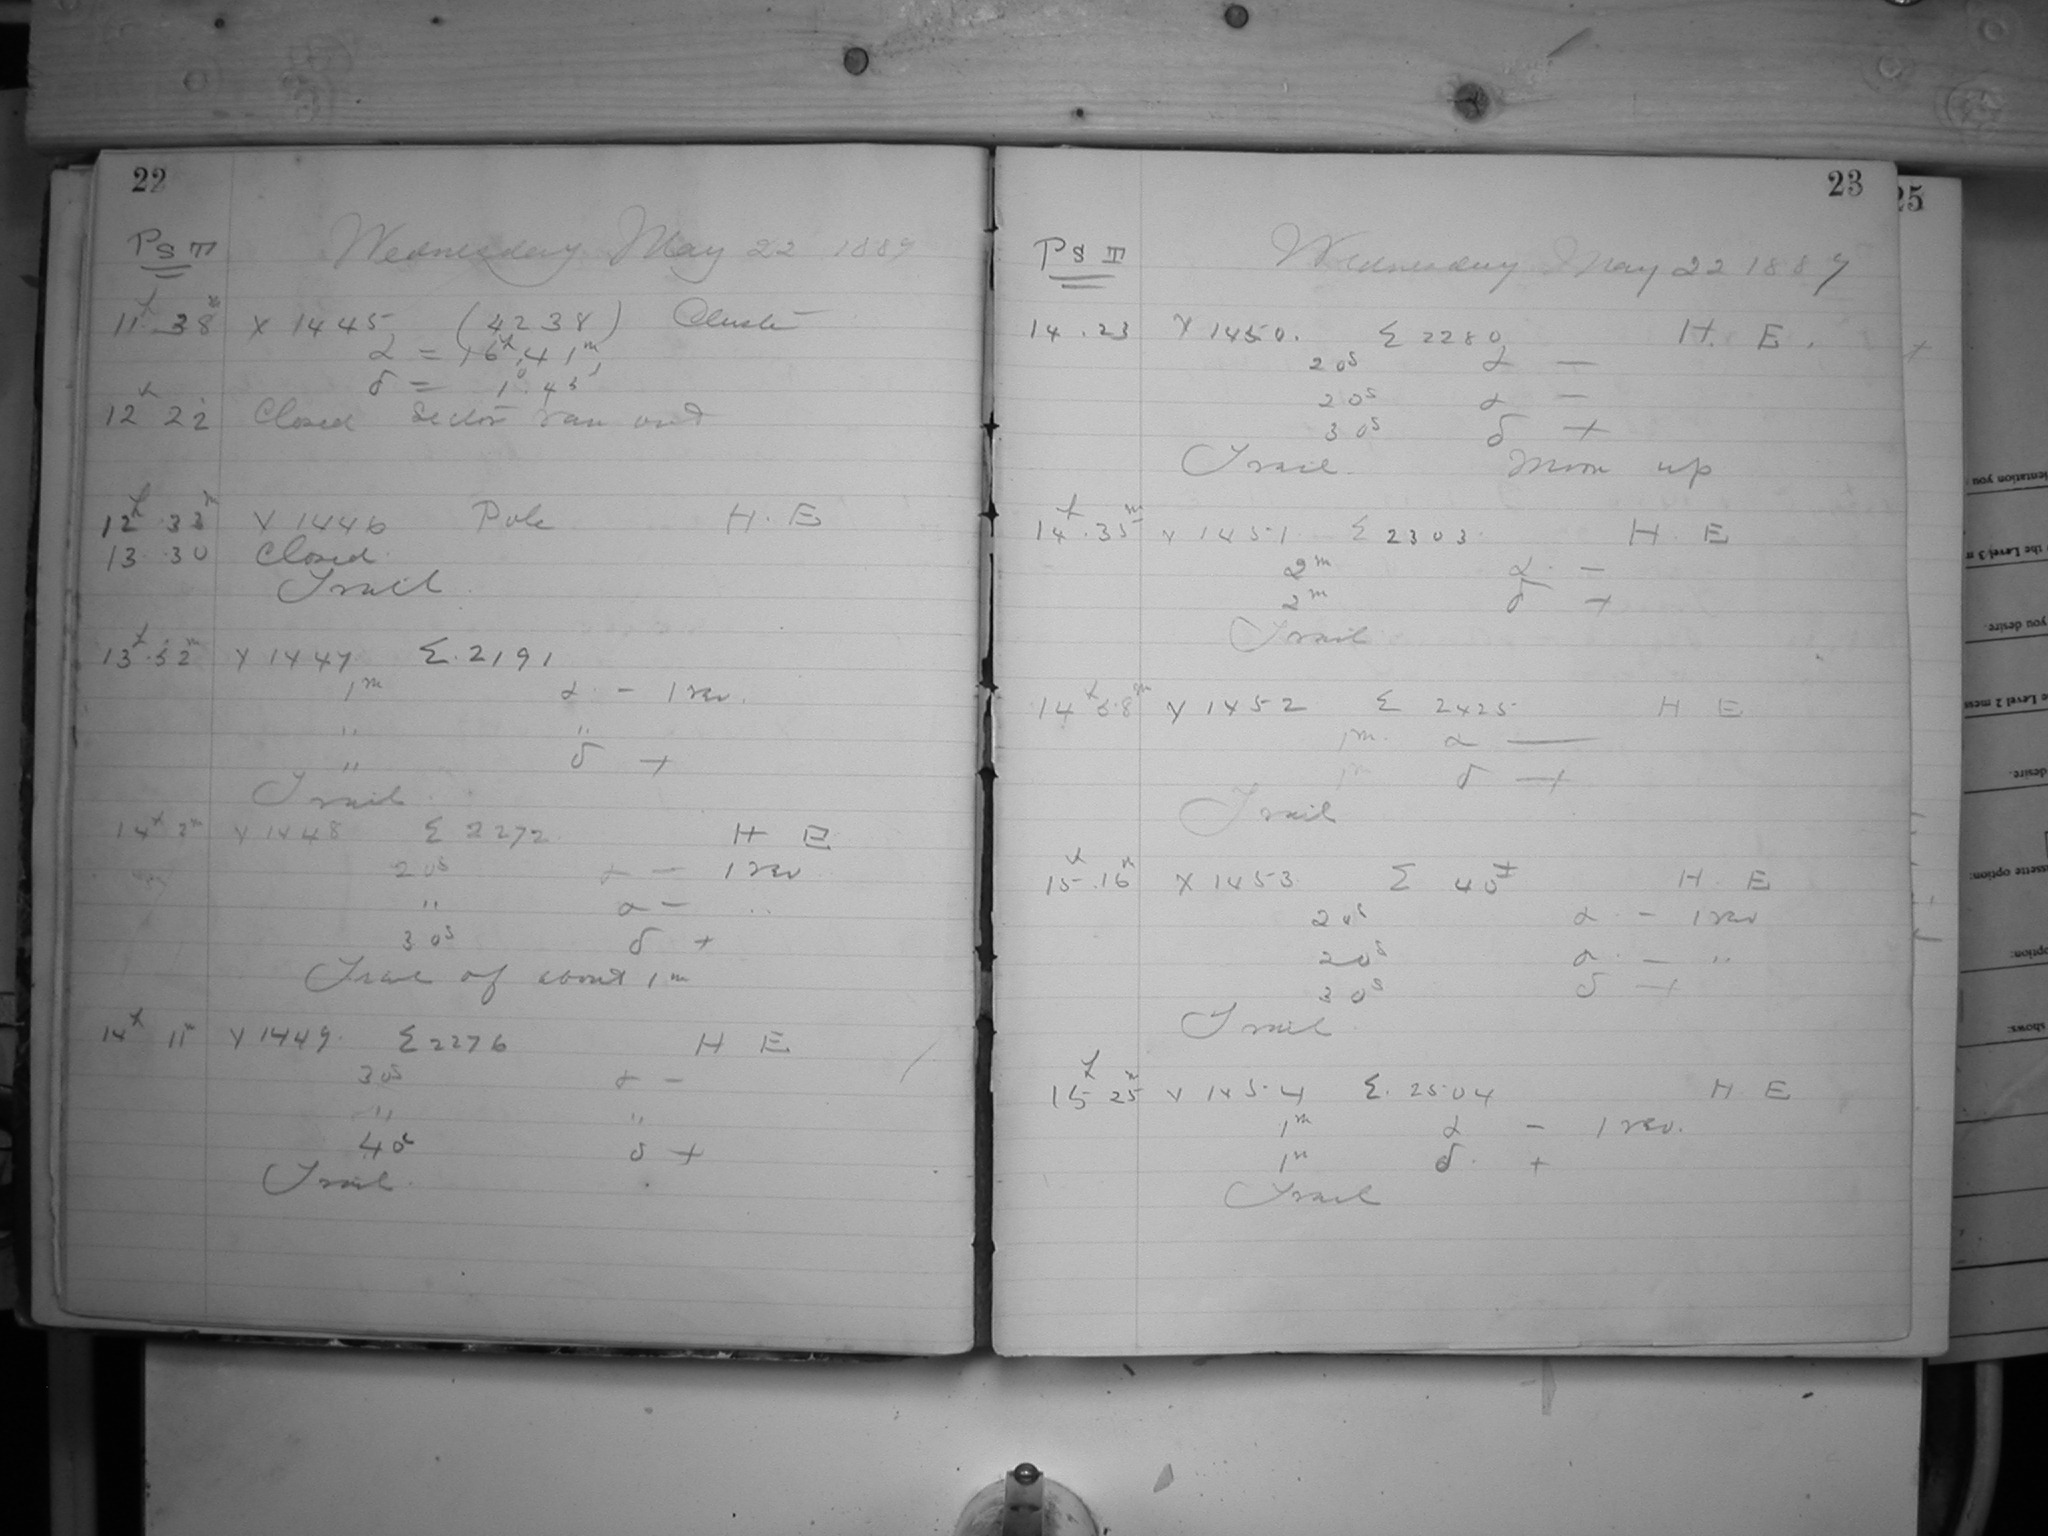 22
PS III Wednesday May 22 1889
11h 38m X 1445 (4238) Cluster
α = 16h.41m
δ = 1°.43'
12h 22 Closed Sector ran out
12h.33m X 1446 Pole H. E
13.30 Closed.
Trail.
13h.52m X 1447 Σ.2191
1m α - 1 rev.
" "
" δ +
Trail.
14h 2m X 1448 Σ 2272 H E
20s α - 1 rev
" α - "
30s δ +
Trail of about 1m
14h 11m X 1449. Σ2276 H E
30s α -
" "
40s δ +
Trail.
23
25
PS III Wednesday May 22 1889
14.23 X 1450. Σ 2280 H. E.
20s α -
20s α -
30s δ +
Trail. Moon up
14h.35m X 1451 Σ 2303. H. E
2m α. -
2m δ +
Trail
14h 58m X 1452 Σ 2425 H E
1m. α -
1m δ +
Trail
15h.16m X 1453. Σ 40± H E
20s α - 1 rev
20s α. - "
30s δ +
Trail.
15h 25m X 1454 Σ. 2504 H E
1m α - 1 rev.
1m δ. +
Trail
you desire.
desire.
option:
shows: